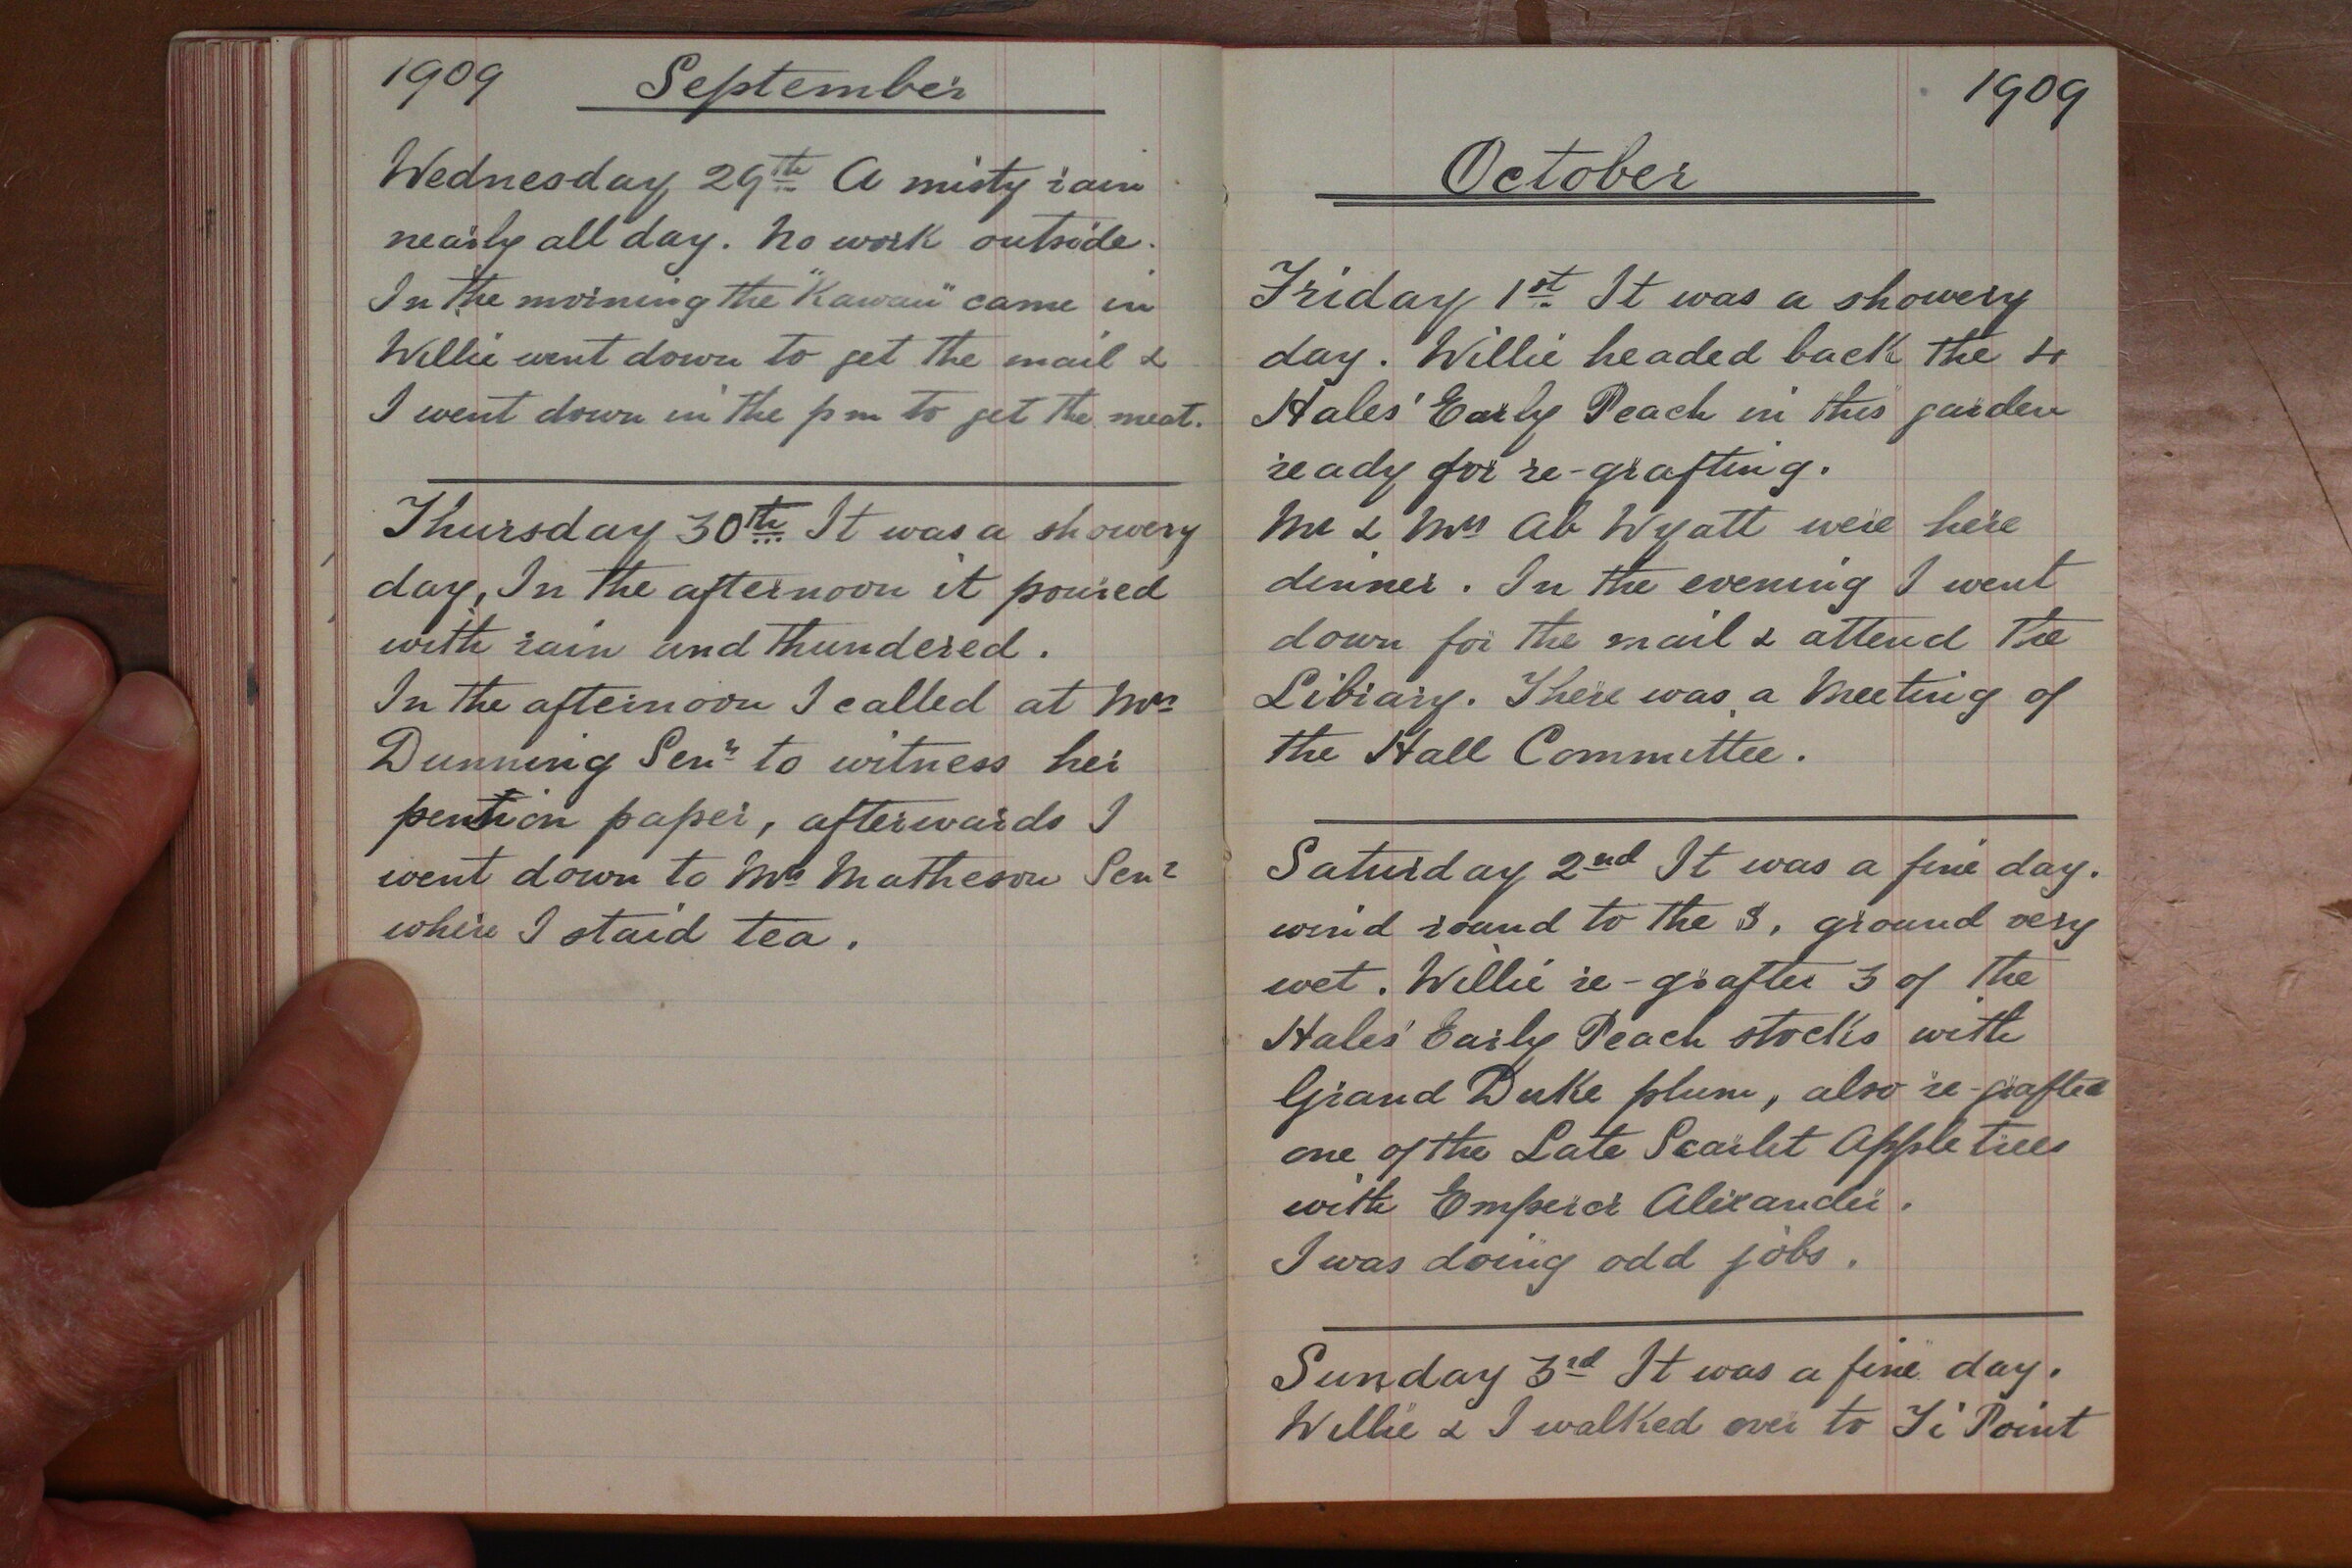 1909 September
Wednesday 29th A misty rain
nearly all day. No work outside.
In the morning the "Kawau" came in
Willie went down to get the mail &
I went down in the pm to get the meat.
Thursday 30th It was a showery
day, In the afternoon it poured
with rain and thundered.
In the afternoon I called at Mrs
Dunning Senr to witness her
pention paper, afterwards I
went down to Mrs Matheson Senr
where I staid tea.
1909
October
Friday 1st It was a showery
day. Willie headed back the 4
Hales' Early Peach in this garden
ready for re-grafting.
Mr & Mrs Ab Wyatt were here
dinner. In the evening I went
down for the mail & attend the
Library. There was a Meeting of
the Hall Committee.
Saturday 2nd It was a fine day.
wind round to the S, ground very
wet. Willie re-grafter 3 of the
Hales' Early Peach stocks with
Grand Duke plum, also re-grafted
one of the Late Scarlet Apple trees
with Emperor Alexander.
I was doing odd jobs.
Sunday 3rd It was a fine day.
Willie & I walked over to Ti Point